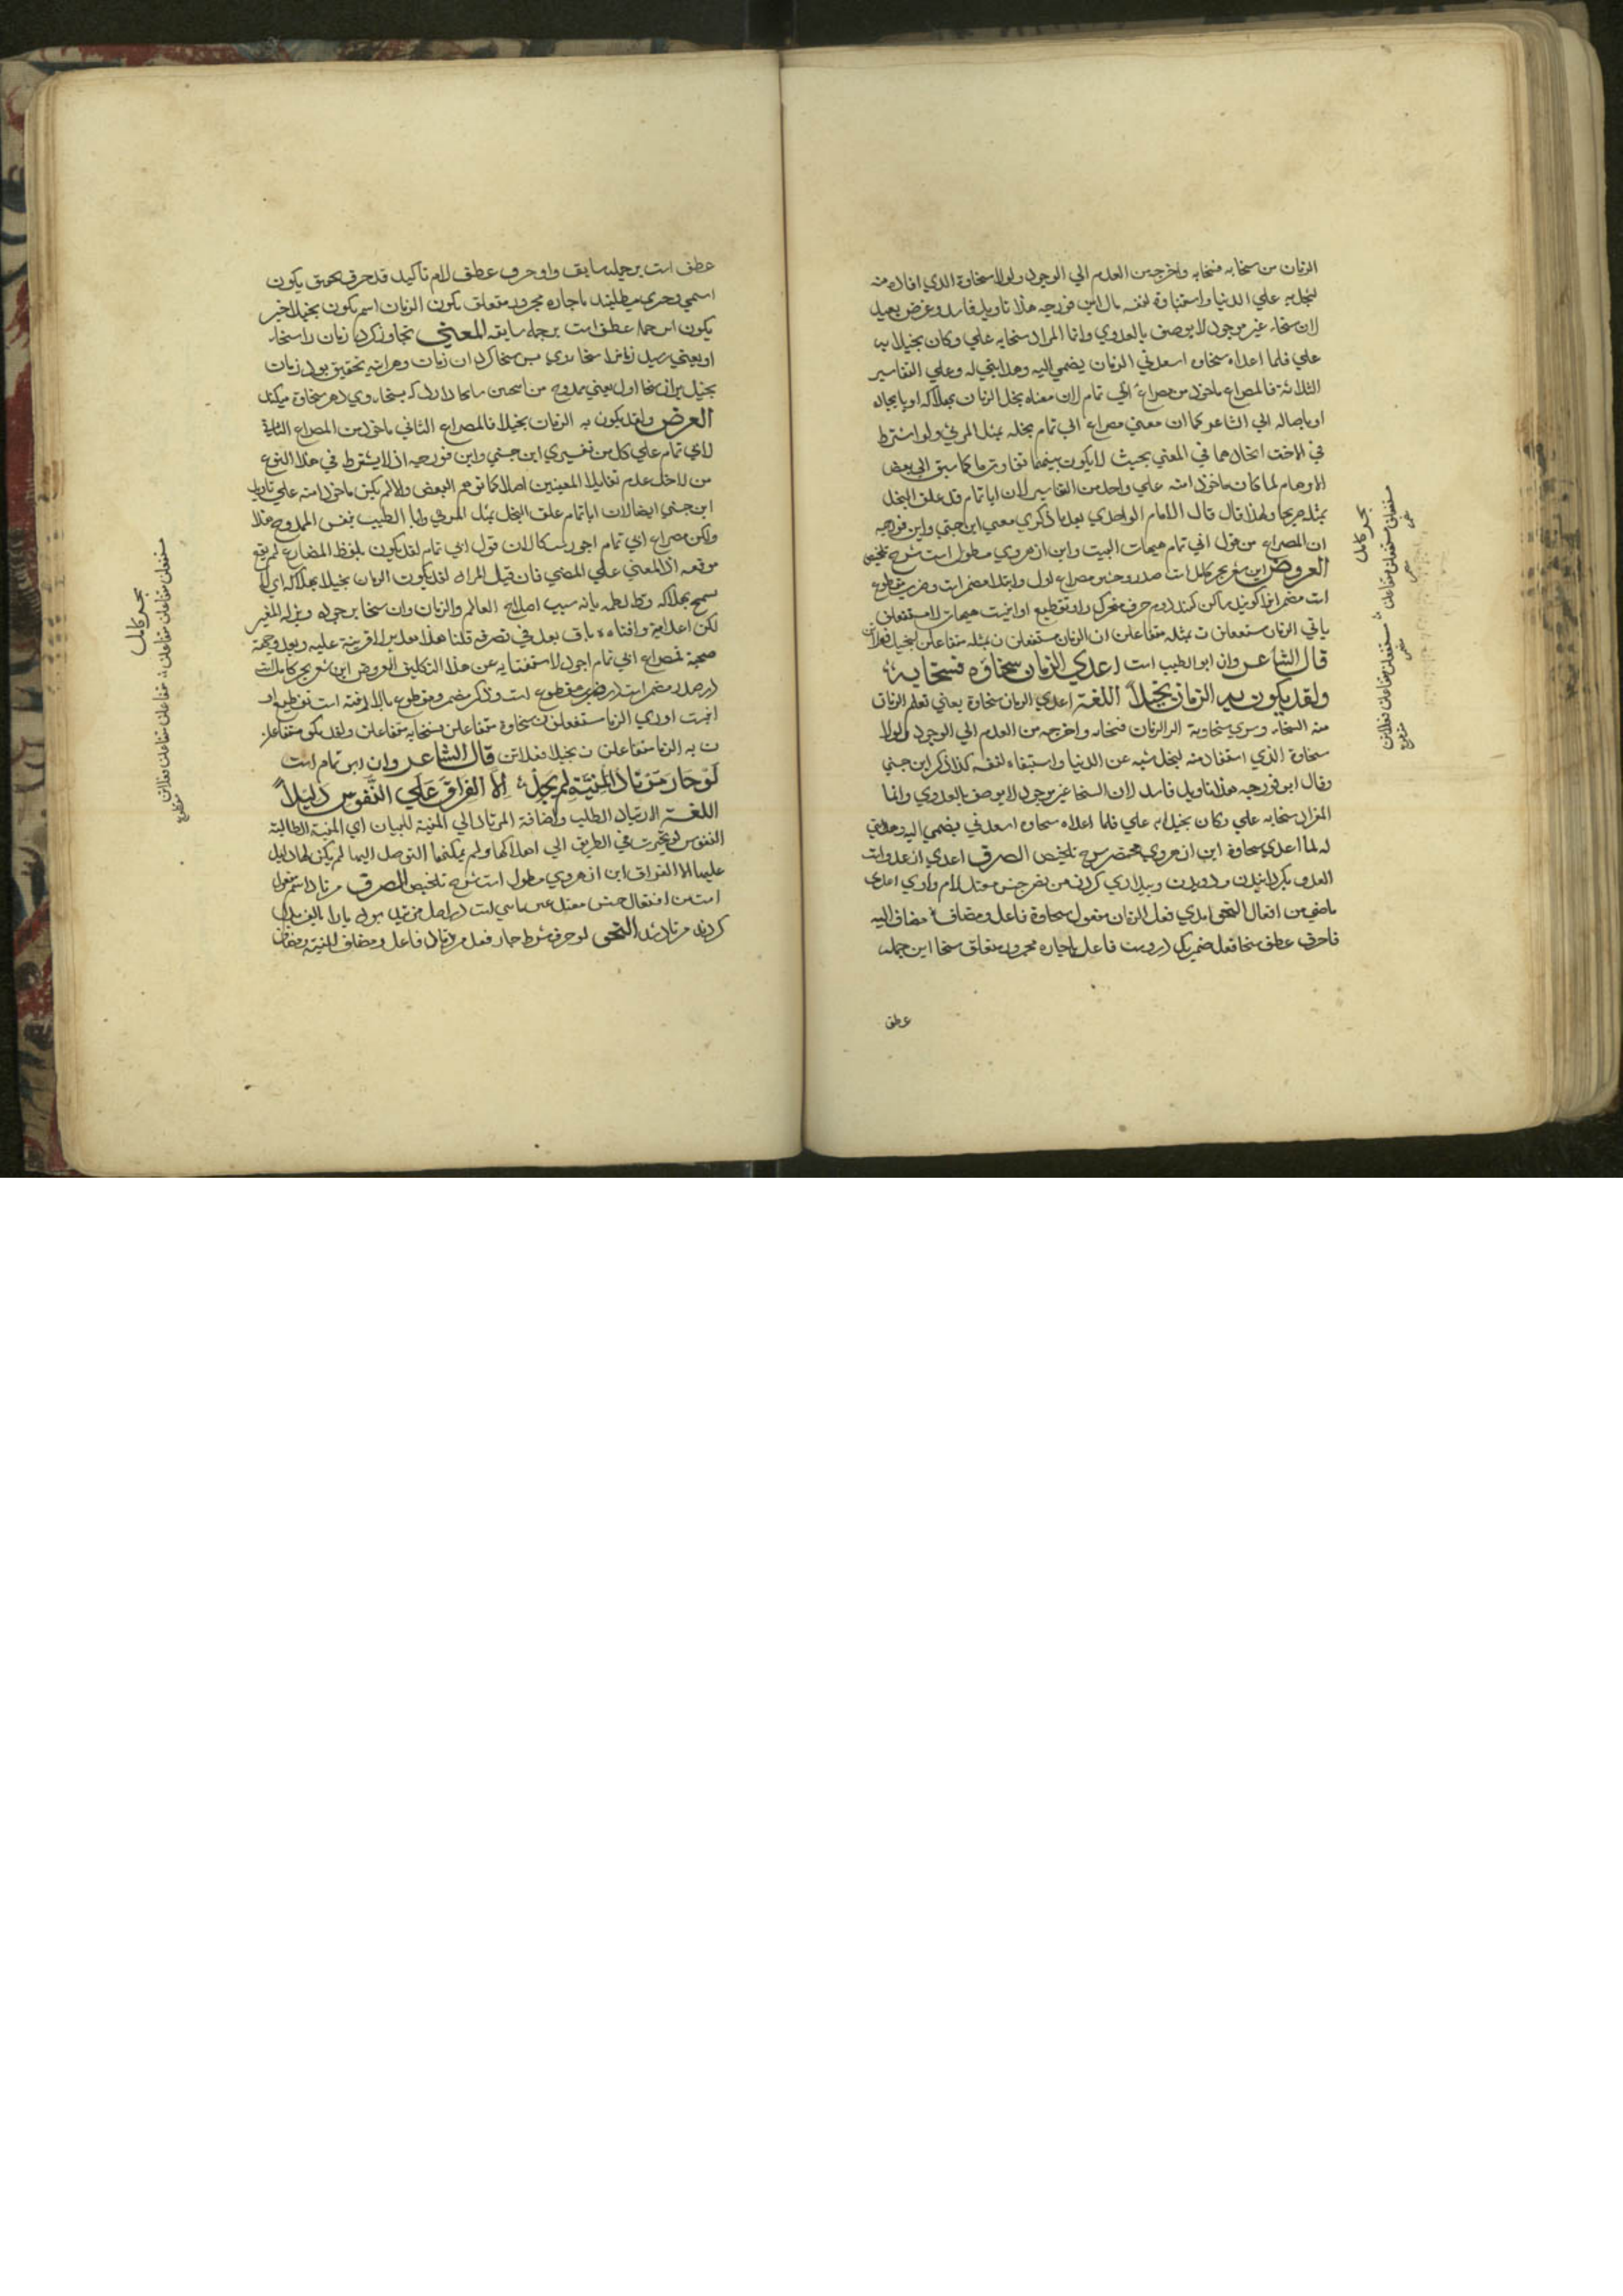 الزمان من سخايه فسخابه واخرجه من العدم الي الوجود ولولا سخاوة الذي افاده منه
لبخل به علي الدنيا واستبقاه لنفسه قال ابن فورجه هذا تاويل فاسد وغرض بعيد
لان سخاء غير موجود لا يوصف بالعدوي وانما المراد سخابه علي وكان بخيلا به
علي فلما اعداه سخاوه اسعدني الزمان بضمي اليه وهدايتي له وعلي التفاسير
الثلاثة فالمصراع ماخوذ من مصراع ابي تمام لان معناه بخل الزمان بهلاكه او بايجاده
او بايصاله الي الشاعر كما ان معني مصراع ابي تمام بخله بمثل المرثي ولو اشترط
في الاخذ اتحادهما في المعني بحيث لا يكون بينهما تفاوت ما كما سبق الي بعض
الاوهام لما كان ماخوذا منه علي واحد من التفاسير لان ابا تمام قد علق البخل
بمثله صريحا ولهذا قال قال الامام الواحدي بعد ما ذكر معني ابن جني وابن فورجه
ان المصراع من قول ابي تمام هيهات البيت واين از هروي مطول است شرح تلخيص
العروض اين شعر بحر كامل است صدر وحشو مصراع اول وابتدا مضمر است وضرب مقطوع
است مضمر انرا كويند ساكن كنند دوم حرف متحرك را وتقطيع او اينست هيهات لا مستفعلن
ياتي الزمان مستفعلن ن بمثله متفاعلن ان الزمان مستفعلن ن بمثله متفاعلن لبخيل فعلاتن
قال الشاعر وان ابو الطيب است اعدي الزمان سخاؤه فسخا به
ولقد يكون به الزمان بخيلاً اللغة اعدي الزمان سخاوة يعني تعلم الزمان
منه السخاء وسري سخاوته الي الزمان فسخابه واخرجه من العدم الي الوجود ولولا
سخاوة الذي استفاد منه لبخل به عن الدنيا واستبقاه لنفسه كذا ذكر ابن جني
وقال ابن فورجه هذا تاويل فاسد لان السخا غير موجود لا يوصف بالعدوي وانما
المراد سخابه علي وكان بخيلا به علي فلما اعداه سخاوه اسعدني بضمي اليه وهدايتي
له لما اعدي سخاوة اين از هروي مختصر شرح تلخيص الصرف اعدي از عدوان
العدو بكردانيدن ودويدن وبيدادي كردن من نصر جنس معتل لام واوي اعدي
ماضي من افعال النحو اعدي فعل الزمان مفعول سخاوة فاعل ومضاف ه مضاف اليه
فا حرف عطف سخا فعل ضمير كي دروست فاعل با جاره ه مجرور متعلق سخا اين جمله
عطف
بحر كامل
مستفعلن مستفعلن متفاعلن مستفعلن متفاعلن فعلاتن
عطف است بر جمله سابق واو حرف عطف لام تاكيد قد حرف تحقيق يكون
اسمي وخبري ميطلبد با جاره ه مجرور متعلق يكون الزمان اسم يكون بخيلا خبر
يكون اين جمله عطف است بر جمله سابقه المعني تجاوز كرد زمان را سخاء
او يعني رسيد زمان را سخاء وي پس سخا كرد ان زمان وهر اينه تحقيق بود زمان
العرض ولقد يكون به الزمان بخيلا فالمصراع الثاني ماخوذ من المصراع الثاني
لابي تمام علي كل من تفسيري ابن جني وابن فورجه اذ لا يشترط في هذا النوع
من الاخذ عدم تغاير المعنيين اصلا كما توهم البعض والا لم يكن ماخوذا منه علي تاويل
ابن جني ايضا لان ابا تمام علق البخل بمثل المرثي وابا الطيب بنفس الممدوح هذا
ولكن مصراع ابي تمام اجود سبكا لان قول ابي الطيب لقد يكون بلفظ المضارع لم يقع
موقعه اذ المعني علي المضي فان قيل المراد لقد يكون الزمان بخيلا بهلاكه اي لا
يسمح بهلاكه قط لعلمه بانه سبب اصلاح العالم والزمان وان سخا بوجوده وبذله للغير
لكن اعدامه وافناه باق بعد في تصرفه قلنا هذا تقدير لا قرينة عليه وبعد صحته
فمصراع ابي تمام اجود لاستغنايه عن هذا التكليف العروض اين شعر بحر كامل است
در صدر مضمر است در ضرب مقطوع است وذكر مضمر ومقطوع بالا رفته است تقطيع او
اينست اعدي الزما مستفعلن ن سخاوه متفاعلن فسخا به متفاعلن ولقد يكو متفاعلن
ن به الزما متفاعلن ن بخيلا فعلاتن قال الشاعر وان ابي تمام است
لَوْ حَارَ مُرْتَادُ الْمَنِيَّةِ لَمْ يَجِدْ اِلَّا الفِرَاقَ عَلَي النُّفُوسِ دَلِيلاً
اللغة الارتياد الطلب واضافة المرتاد الي المنية للبيان اي المنية الطالبة
النفوس لو تحيرت في الطريق الي اهلاكها ولم يمكنها التوصل اليها لم يكن لها دليل
عليها الا الفراق اين از هروي مطول است شرح تلخيص الصرف مرتاد اسم مفعول
كردند مرتاد شد النحو لو حرف شرط حار فعل مرتاد فاعل ومضاف المنية مضاف
بحر كامل
مستفعلن متفاعلن متفاعلن متفاعلن متفاعلن فعلاتن
مقطوع